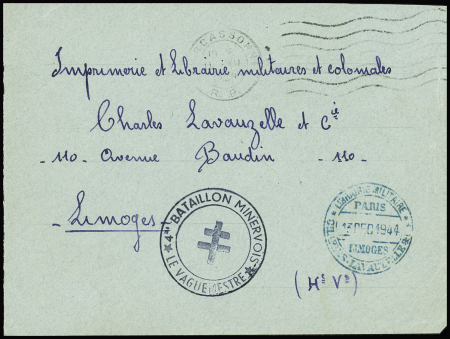 Imprimerie et Librairie militaires et coloniales
Charles Lavauzelle et Cie
- 110 - Avenue Baudin - 110 -
Limoges
4me BATAILLON MINERVOIS
LE VAGUEMESTRE
LIBRAIRIE MILITAIRE
PARIS
DEC 1944
LIMOGES
LAVAUZELLE
(Hte Vne)